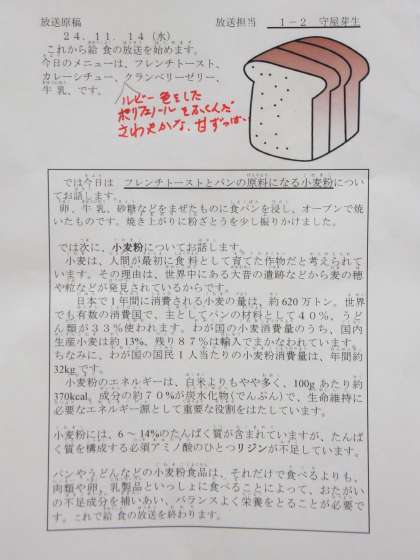 放送原稿
放送担当 1－2 守屋芽生
24．11．14（水）
これから給食の放送を始めます。
今日のメニューは、フレンチトースト、
カレーシチュー、クランベリーゼリー、
牛乳、です。
ルビー色をした
ポリフェノールをふくんだ
さわやかな、甘ずっぱい
では今日は フレンチトーストとパンの原料になる小麦粉につい
てお話します。
卵、牛乳、砂糖などをまぜたものに食パンを浸し、オーブンで焼
いたものです。焼き上がりに粉ざとうを少し振りかけました。
では次に、小麦粉についてお話します。
小麦は、人間が最初に食料として育てた作物だと考えられて
います。その理由は、世界中にある大昔の遺跡などから麦の穂
や粒などが発見されているからです。
日本で1年間に消費される小麦の量は、約620万トン。世界
でも有数の消費国で、主としてパンの材料として40％、うど
ん類が33％使われます。わが国の小麦消費量のうち、国内
生産小麦は約13%、残り87％は輸入でまかなわれています。
ちなみに、わが国の国民1人当たりの小麦粉消費量は、年間約
32kgです。
小麦粉のエネルギーは、白米よりもやや多く、100gあたり約
370kcal。成分の約70％が炭水化物（でんぷん）で、生命維持に
必要なエネルギー源として重要な役割をはたしています。
小麦粉には、6～14%のたんぱく質が含まれていますが、たんぱ
く質を構成する必須アミノ酸のひとつリジンが不足しています。
パンやうどんなどの小麦粉食品は、それだけで食べるよりも、
肉類や卵、乳製品といっしょに食べることによって、おたがい
の不足成分を補いあい、バランスよく栄養をとることが必要で
す。これで給食の放送を終わります。